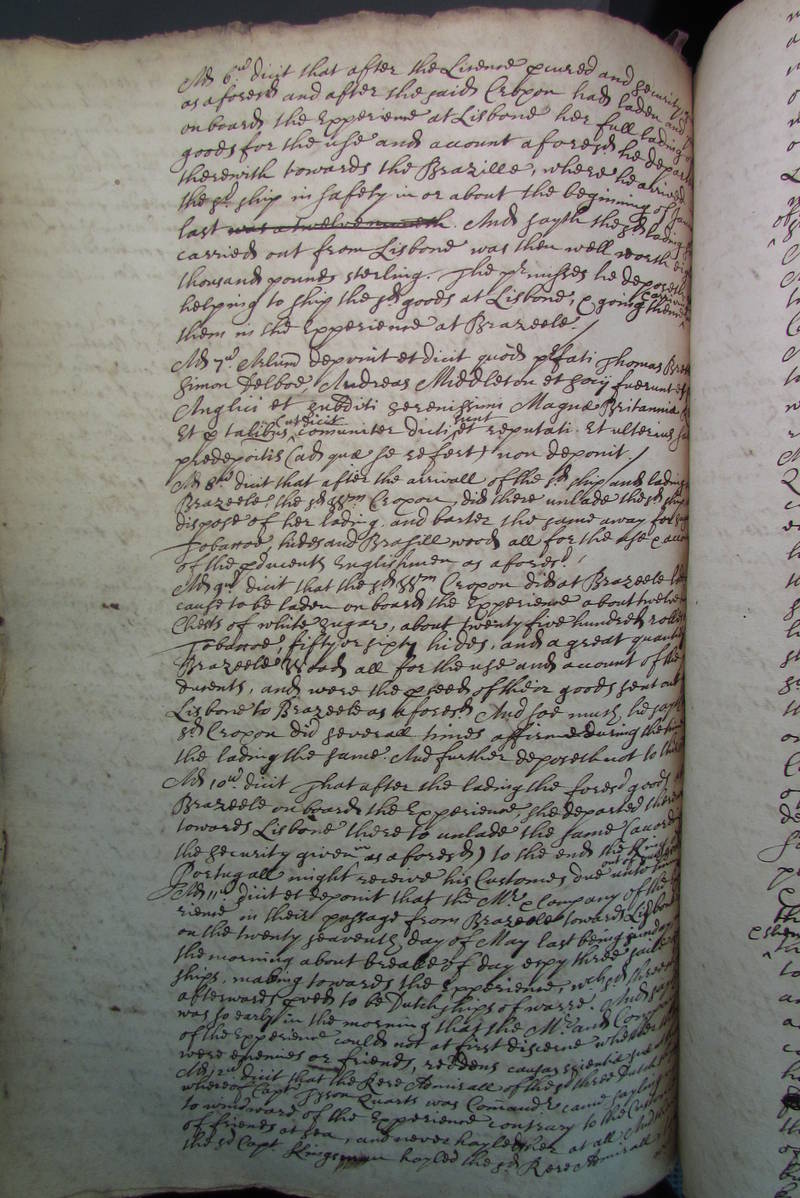 Ad 6um dicit that after the Licence pcured and security
as aforesd and after the said Cropon had laden
on board the Experience at Lisbone her full lading
goods for the use and account aforesd he depar
therewith towards the Brazille, where he arrived
the sd ship in safety in or about the beginning of
last was a twelvemoneth. And sayth the sd lading
carried out from Lisbone was then well worth
thousand pounds sterling. The prmisses he deposeth
helping to ship the sd goods at Lisbone, & going
them in the Experience at Brazeele /
Ad 7um Arlum deponit et dicit quod pfati Thomas
Simon Delboe, Andreas Middleton et socij fuerunt et
Anglici et subditi serenissimi Magnæ Britanniæ
Et p talibus communiter dicti, et reputati. Et ulterius
predepositis (ad quæ se refert) non deponit /
Ad 8um dicit that after the arrivall of the sd ship and lading
Brazeele, the sd Wm Cropon, did there unlade the sd ship
dispose of her lading, and barter the same away for
Tobaccoe, hides and Brasill wood all for the use &
of the pducents Englishmen as aforesd /
Ad 9um dicit that the sd Wm Cropon did at Brazeele
cause to be laden on board the Experience about twelve
Chests of white sugar, about twenty five hundred rolls
Tobaccoe, fifty or sixty hides, and a great quantity
Brazeele Wood all for the use and account of the
ducents, and were the pceed of their goods sent out
Lisbone to Brazeele as aforesd And soe much he sayth
sd Cropon did severall times affirme during the time
the lading the same. And further deposeth not to
Ad 10um dicit That after the lading the foresd goods
Brazeele on board the Experience, she departed
towards Lisbone there to unlade the same (
the security given as aforesd) to the end the King
Portugall might receive his Customes due
Ad 11um dicit et deponit that the Mr & Company of the
rience in their passage from Brazeele towards Lisbone
on the twenty seaventh day of May last being Sunday
the morning about breake of day espy three
ships, making towards the Experience, wch sd three
afterwards pved to be Dutch ships of warre. And
was so early in the morning that the Mr and Comp
of the Experience could not at first discerne whether
were enemies or friends, reddens causas scientiæ
Ad 12um dicit that the Rere Admirall of the sd three Dutch
whereof Capt Quarts was Comandr came sayling
to windward of the Experience contrary to the Custome
of friends at sea, and never hayled her at all And
the sd Capt Kingsman hayled the sd Rere Admirall